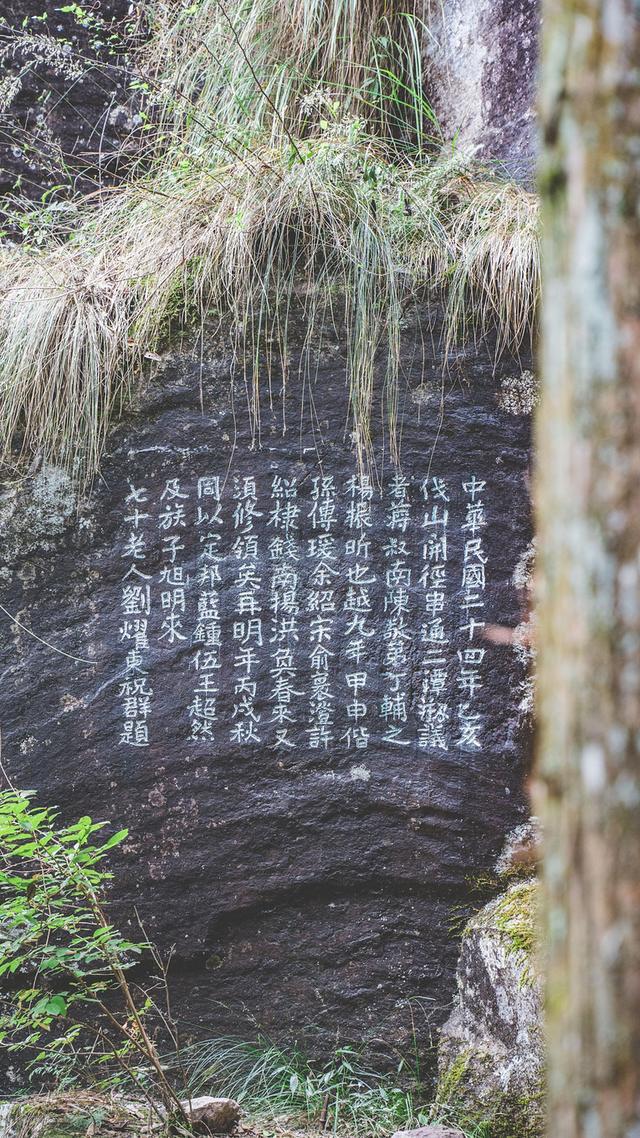 中華民國二十四年乙亥
伐山開徑串通二潭郰議
者蔣叔南陳敬第丁輔之
楊振昕也越九年甲申偕
孫傅瑗余紹宋俞襄澄許
紹棣錢南揚洪奐春來又
須修領英再明年丙戌秋
同以定邦藍鍾伍王超然
及族子旭明來
七十老人劉耀東祝群題